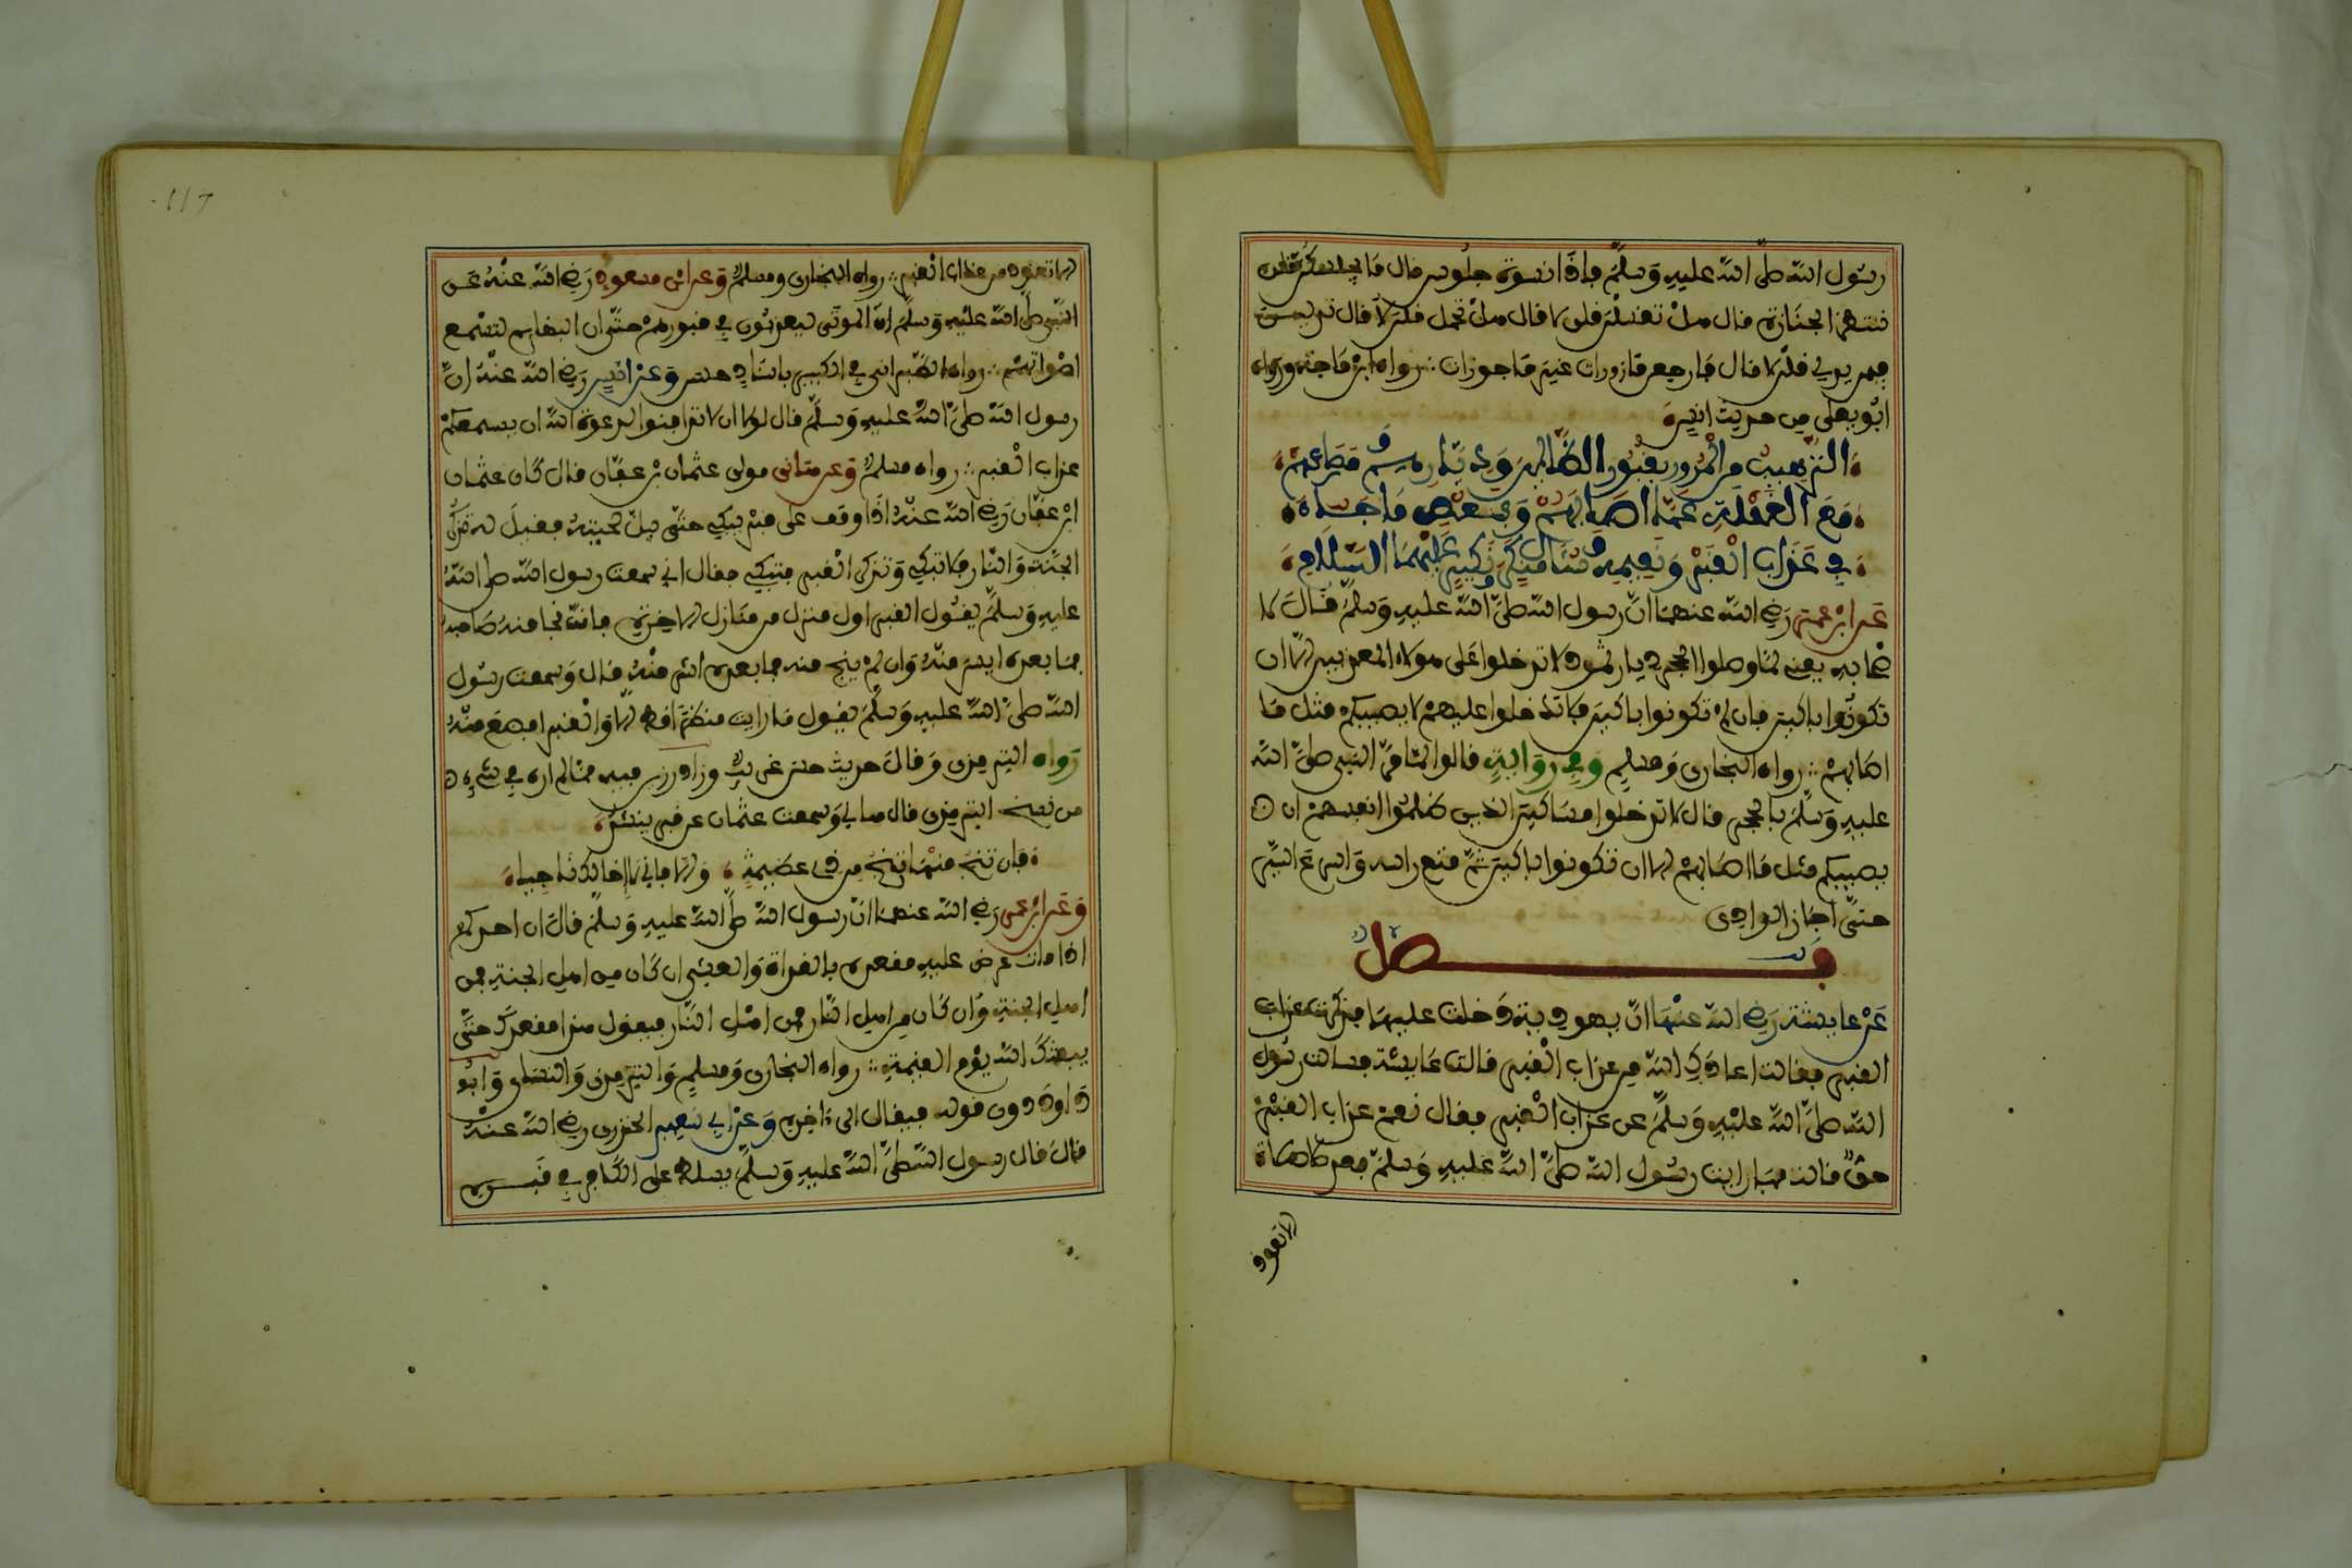 رسول الله صلى الله عليه وسلم فاذا نسوة جلوس فال ما يجلسكن فلن
ننتظر الجنازة فال هل تغسلن فلن لا فال هل تحملن فلن لا فال هل تدلين
فيمن يدلي فلن لا فال فارجعن مازورات غير ماجورات رواه ابن ماجة ورواه
ابو يعلى من حديث انس
الترهيب من المرور بقبور الظالمين وديارهم ومصارعهم
مع الغفلة عما اصابهم وبعض ما جاء
في عذاب القبر ونعيمه وسؤال منكر ونكير عليهما السلام
عن ابن عمر رضي الله عنهما ان رسول الله صلى الله عليه وسلم فال لا
صحابه يعني لما وصلوا الحجر ديار ثمود لا تدخلوا على هولاء المعذبين الا ان
تكونوا باكين فان لم تكونوا باكين فلا تدخلوا عليهم لا يصيبكم مثل ما
اصابهم رواه البخاري ومسلم وفي رواية فالوا لما مر النبي صلى الله
عليه وسلم بالحجر فال لا تدخلوا مساكين الذين ظلموا انفسهم ان
يصيبكم مثل ما اصابهم الا ان تكونوا باكين ثم فنع راسه واسرع السير
حتى اجاز الوادي
فصل
عن عايشة رضي الله عنها ان يهودية دخلت عليها فذكرت عذاب
القبر ففالت اعاذك الله من عذاب القبر فالت عايشة فسالت رسول
الله صلى الله عليه وسلم عن عذاب القبر ففال نعم عذاب القبر
حق فالت فما رايت رسول الله صلى الله عليه وسلم بعد صلى صلاة
الا تعوذ
117
الا تعوذ من عذاب القبر رواه البخاري ومسلم وعن ابن مسعود رضي الله عنه عن
النبي صلى الله عليه وسلم ان الموتى ليعذبون في فبورهم حتى ان البهايم لتسمع
اصواتهم رواه الطبراني في الكبير باسناد حسن وعن انس رضي الله عنه ان
رسول الله صلى الله عليه وسلم فال لولا ان لا تدافنوا لدعوت الله ان يسمعكم
عذاب القبر رواه مسلم وعن هانى مولى عثمان بن عفان فال كان عثمان
ابن عفان رضي الله عنه اذا وفف على فبر يبكي حتى يبل لحيته ففيل له تذكر
الجنة والنار فلا تبكي وتذكر القبر فتبكي ففال اني سمعت رسول الله صلى الله
عليه وسلم يفول القبر اول منزل من منازل الاخرة فان نجا منه صاحبه
فما بعده ايسر منه وان لم ينج منه فما بعده اشد منه فال وسمعت رسول
الله صلى الله عليه وسلم يفول ما رايت منظرا فط الا والقبر افظع منه
رواه الترمذي وفال حديث حسن غريب وزاد رزين فيه مما لم اره في شيء
من نسخ الترمذي فال هاني وسمعت عثمان على فبر ينشد
فان تنج منها تنج من ذي عظيمة والا فاني لا اخالك ناجيا
وعن ابن عمر رضي الله عنهما ان رسول الله صلى الله عليه وسلم فال ان احدكم
اذا مات عرض عليه مفعده بالغداة والعشي ان كان من اهل الجنة فمن
اهل الجنة وان كان من اهل النار فمن اهل النار فيفول هذا مفعدك حتى
يبعثك الله يوم القيمة رواه البخاري ومسلم والترمذي والنساي وابو
داود دون فوله فيفال الى اخره وعن ابي سعيد الخدري رضي الله عنه
فال فال رسول الله صلى الله عليه وسلم يسلط على الكافر في فبره